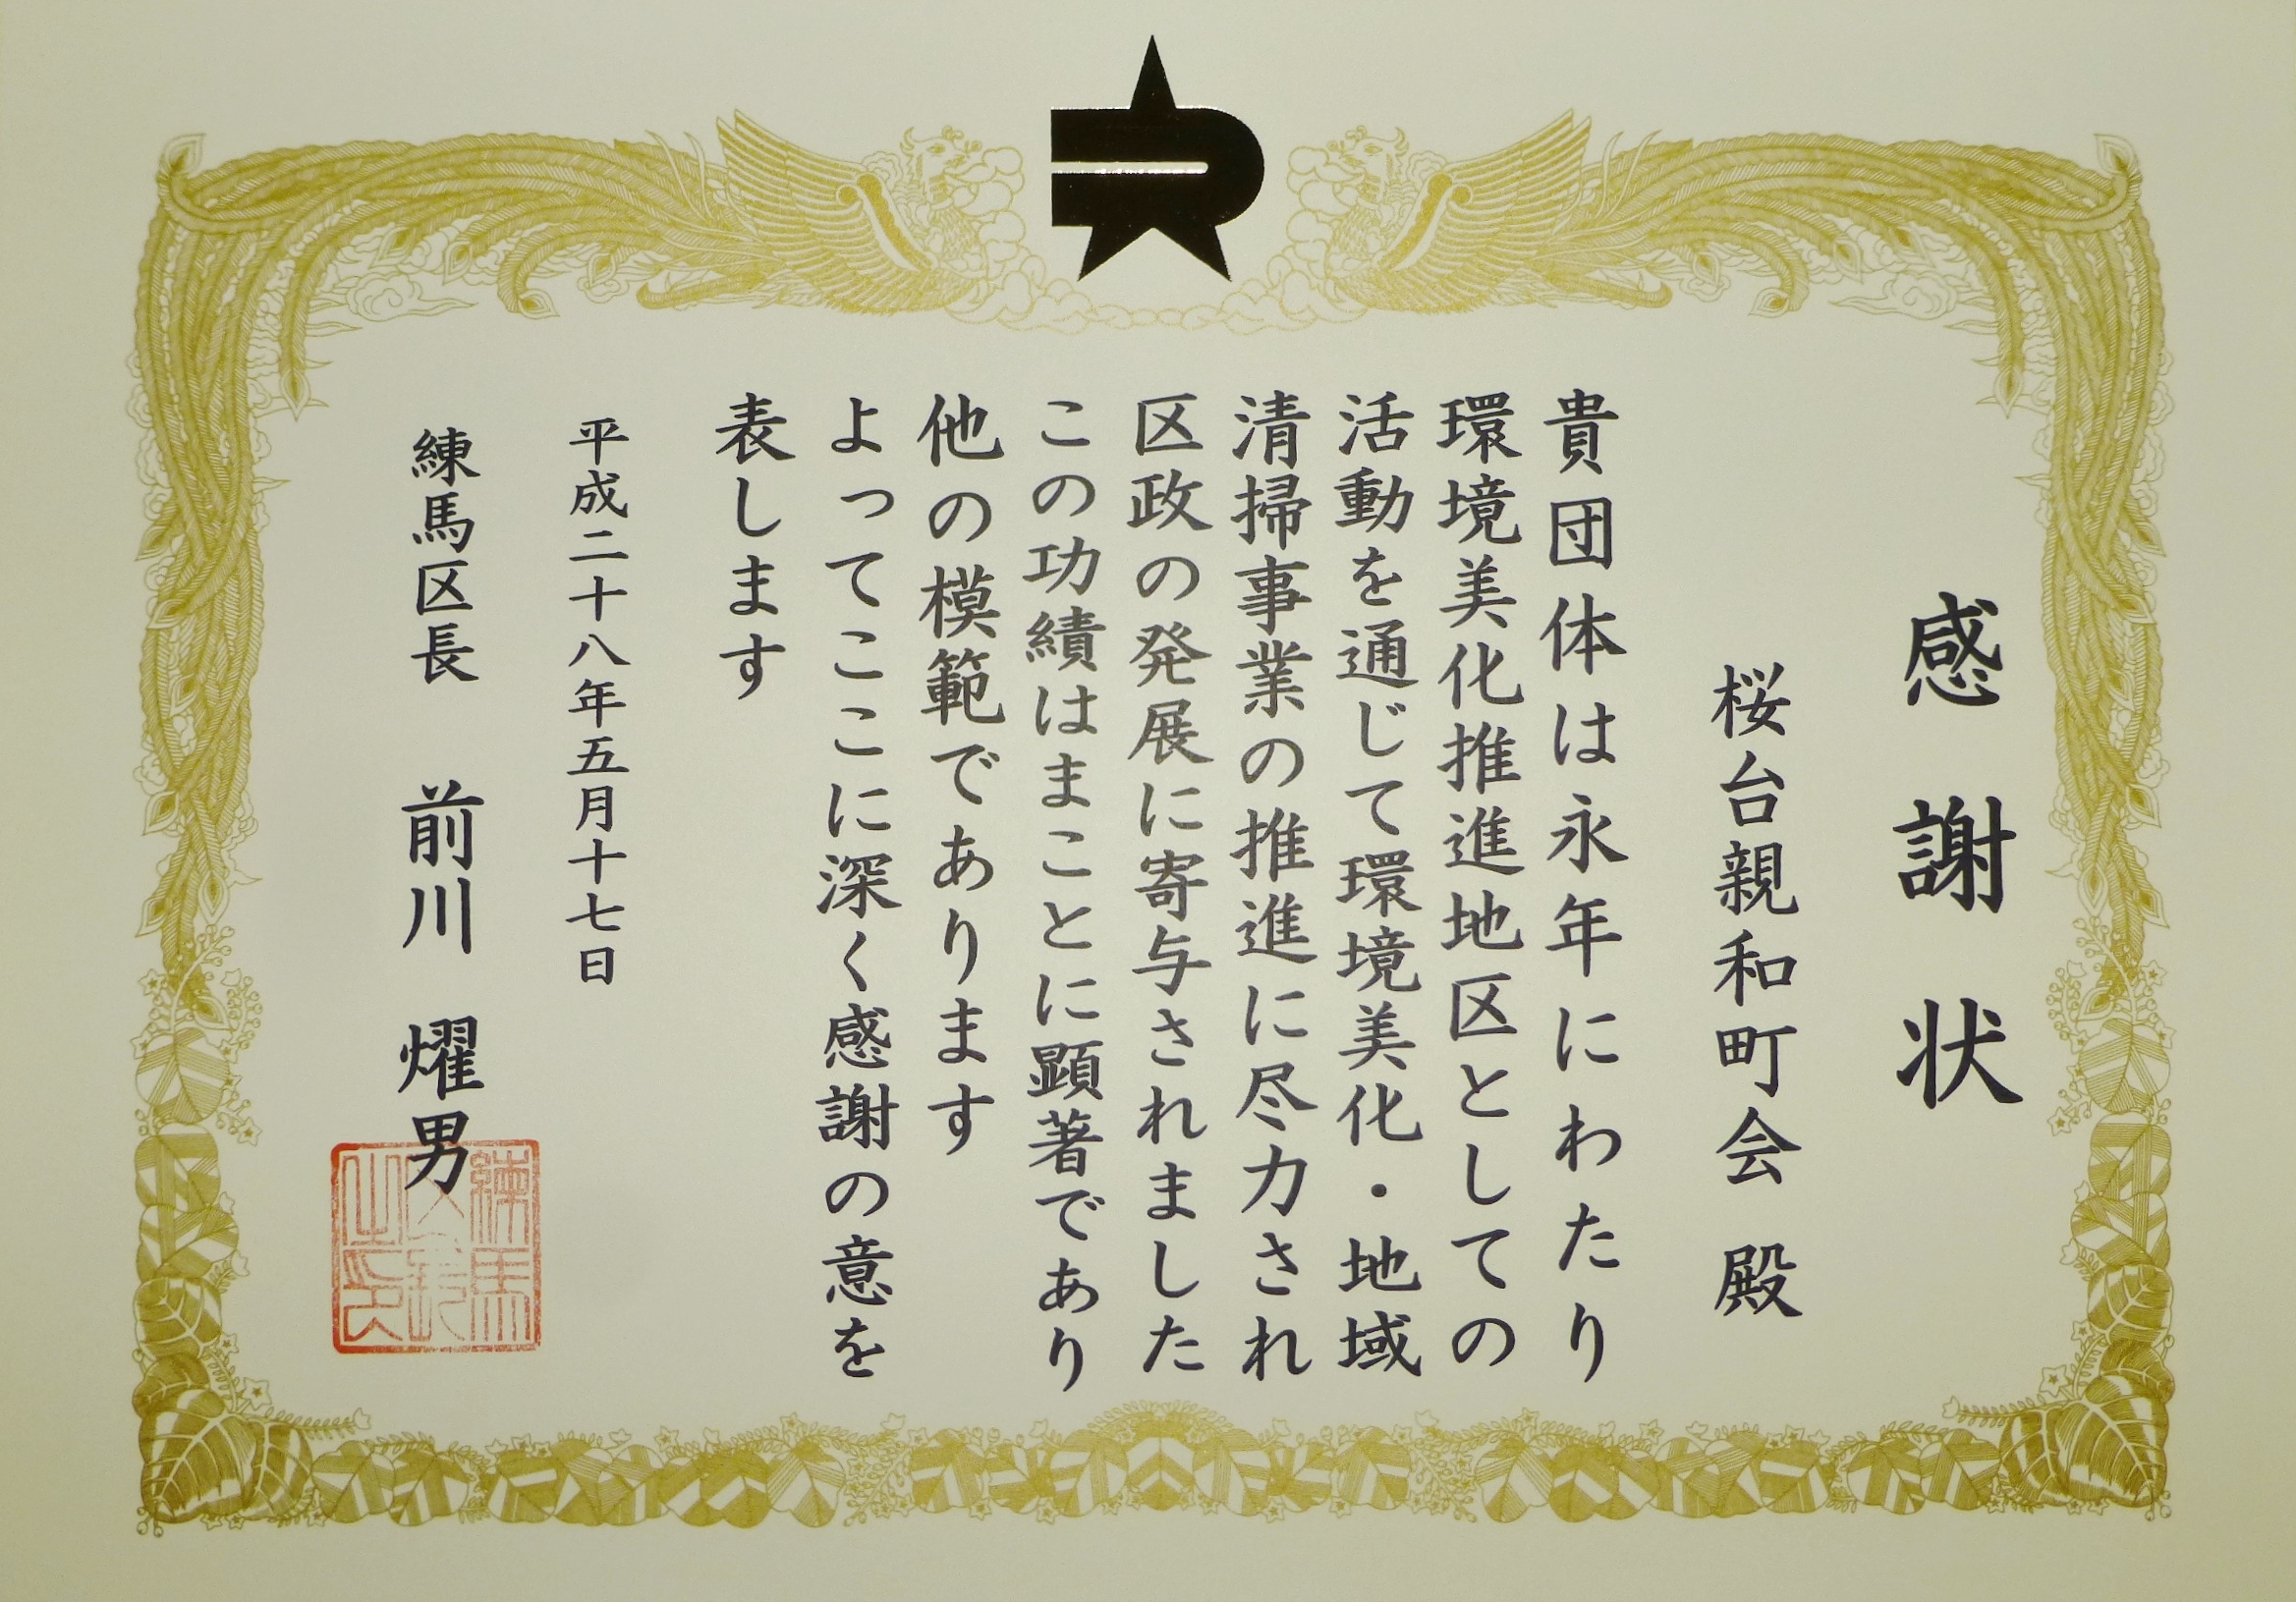 感謝状
桜台親和町会 殿
貴団体は永年にわたり
環境美化推進地区としての
活動を通じて環境美化・地域
清掃事業の推進に尽力され
区政の発展に寄与されました
この功績はまことに顕著であり
他の模範であります
よってここに深く感謝の意を
表します
平成二十八年五月十七日
練馬区長 前川 燿男
練馬
区長
之印